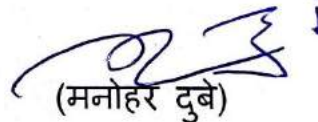 (मनोहर दुबे)